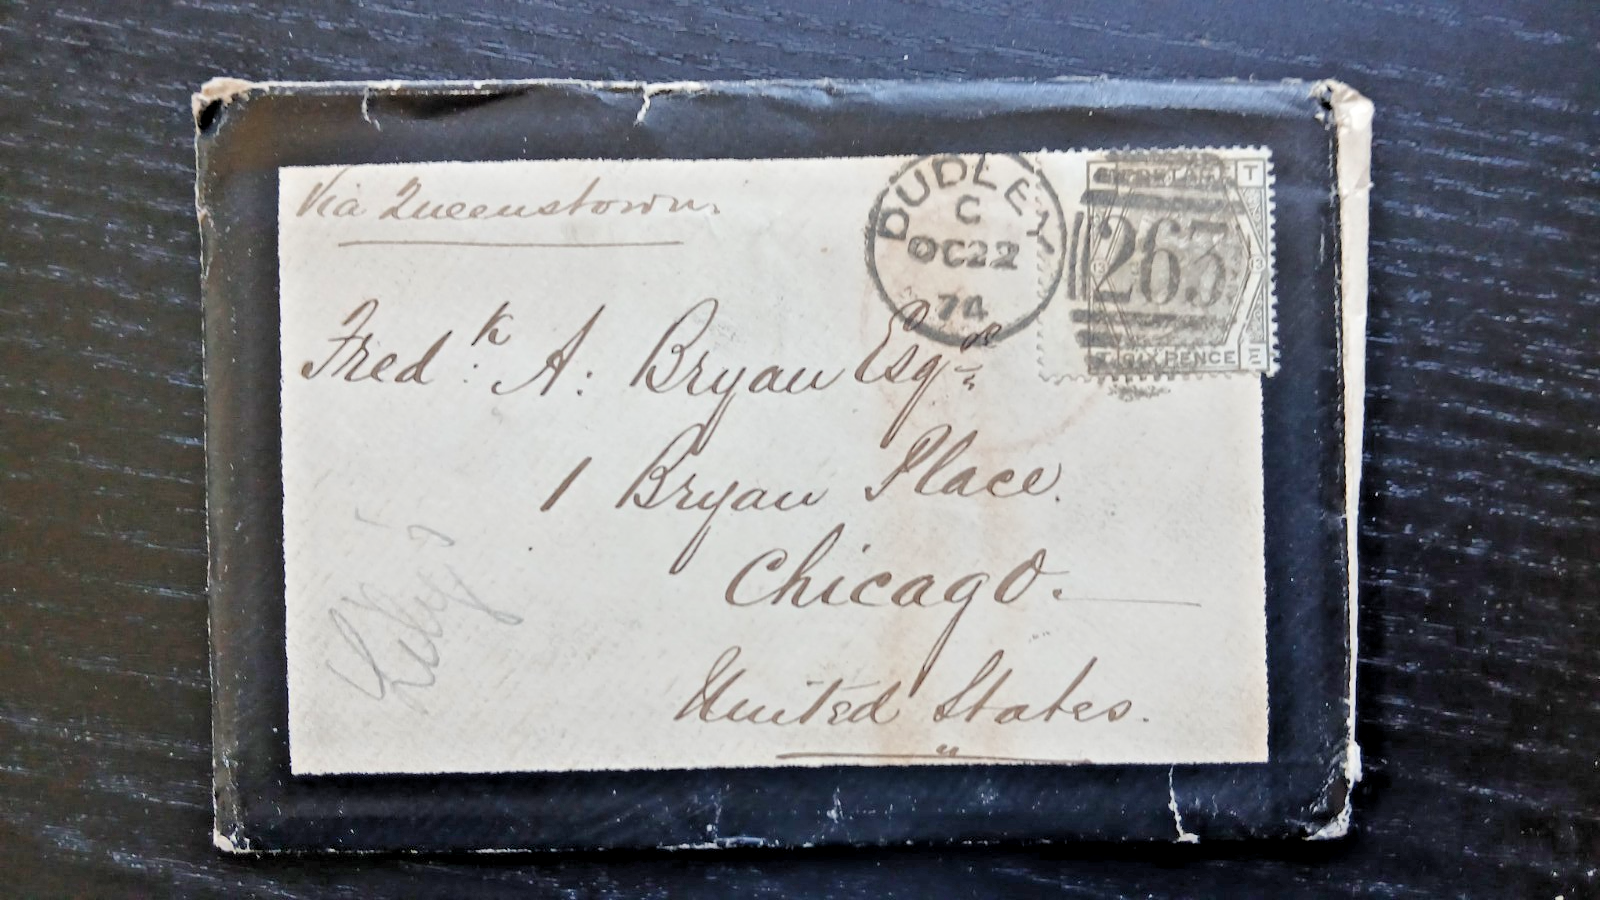 Via Queenstown.
DUDLEY
C
OC22
74
T
263
SIX PENCE E
Fredk: A: Bryan Esqre
1 Bryan Place.
Chicago.
United States.